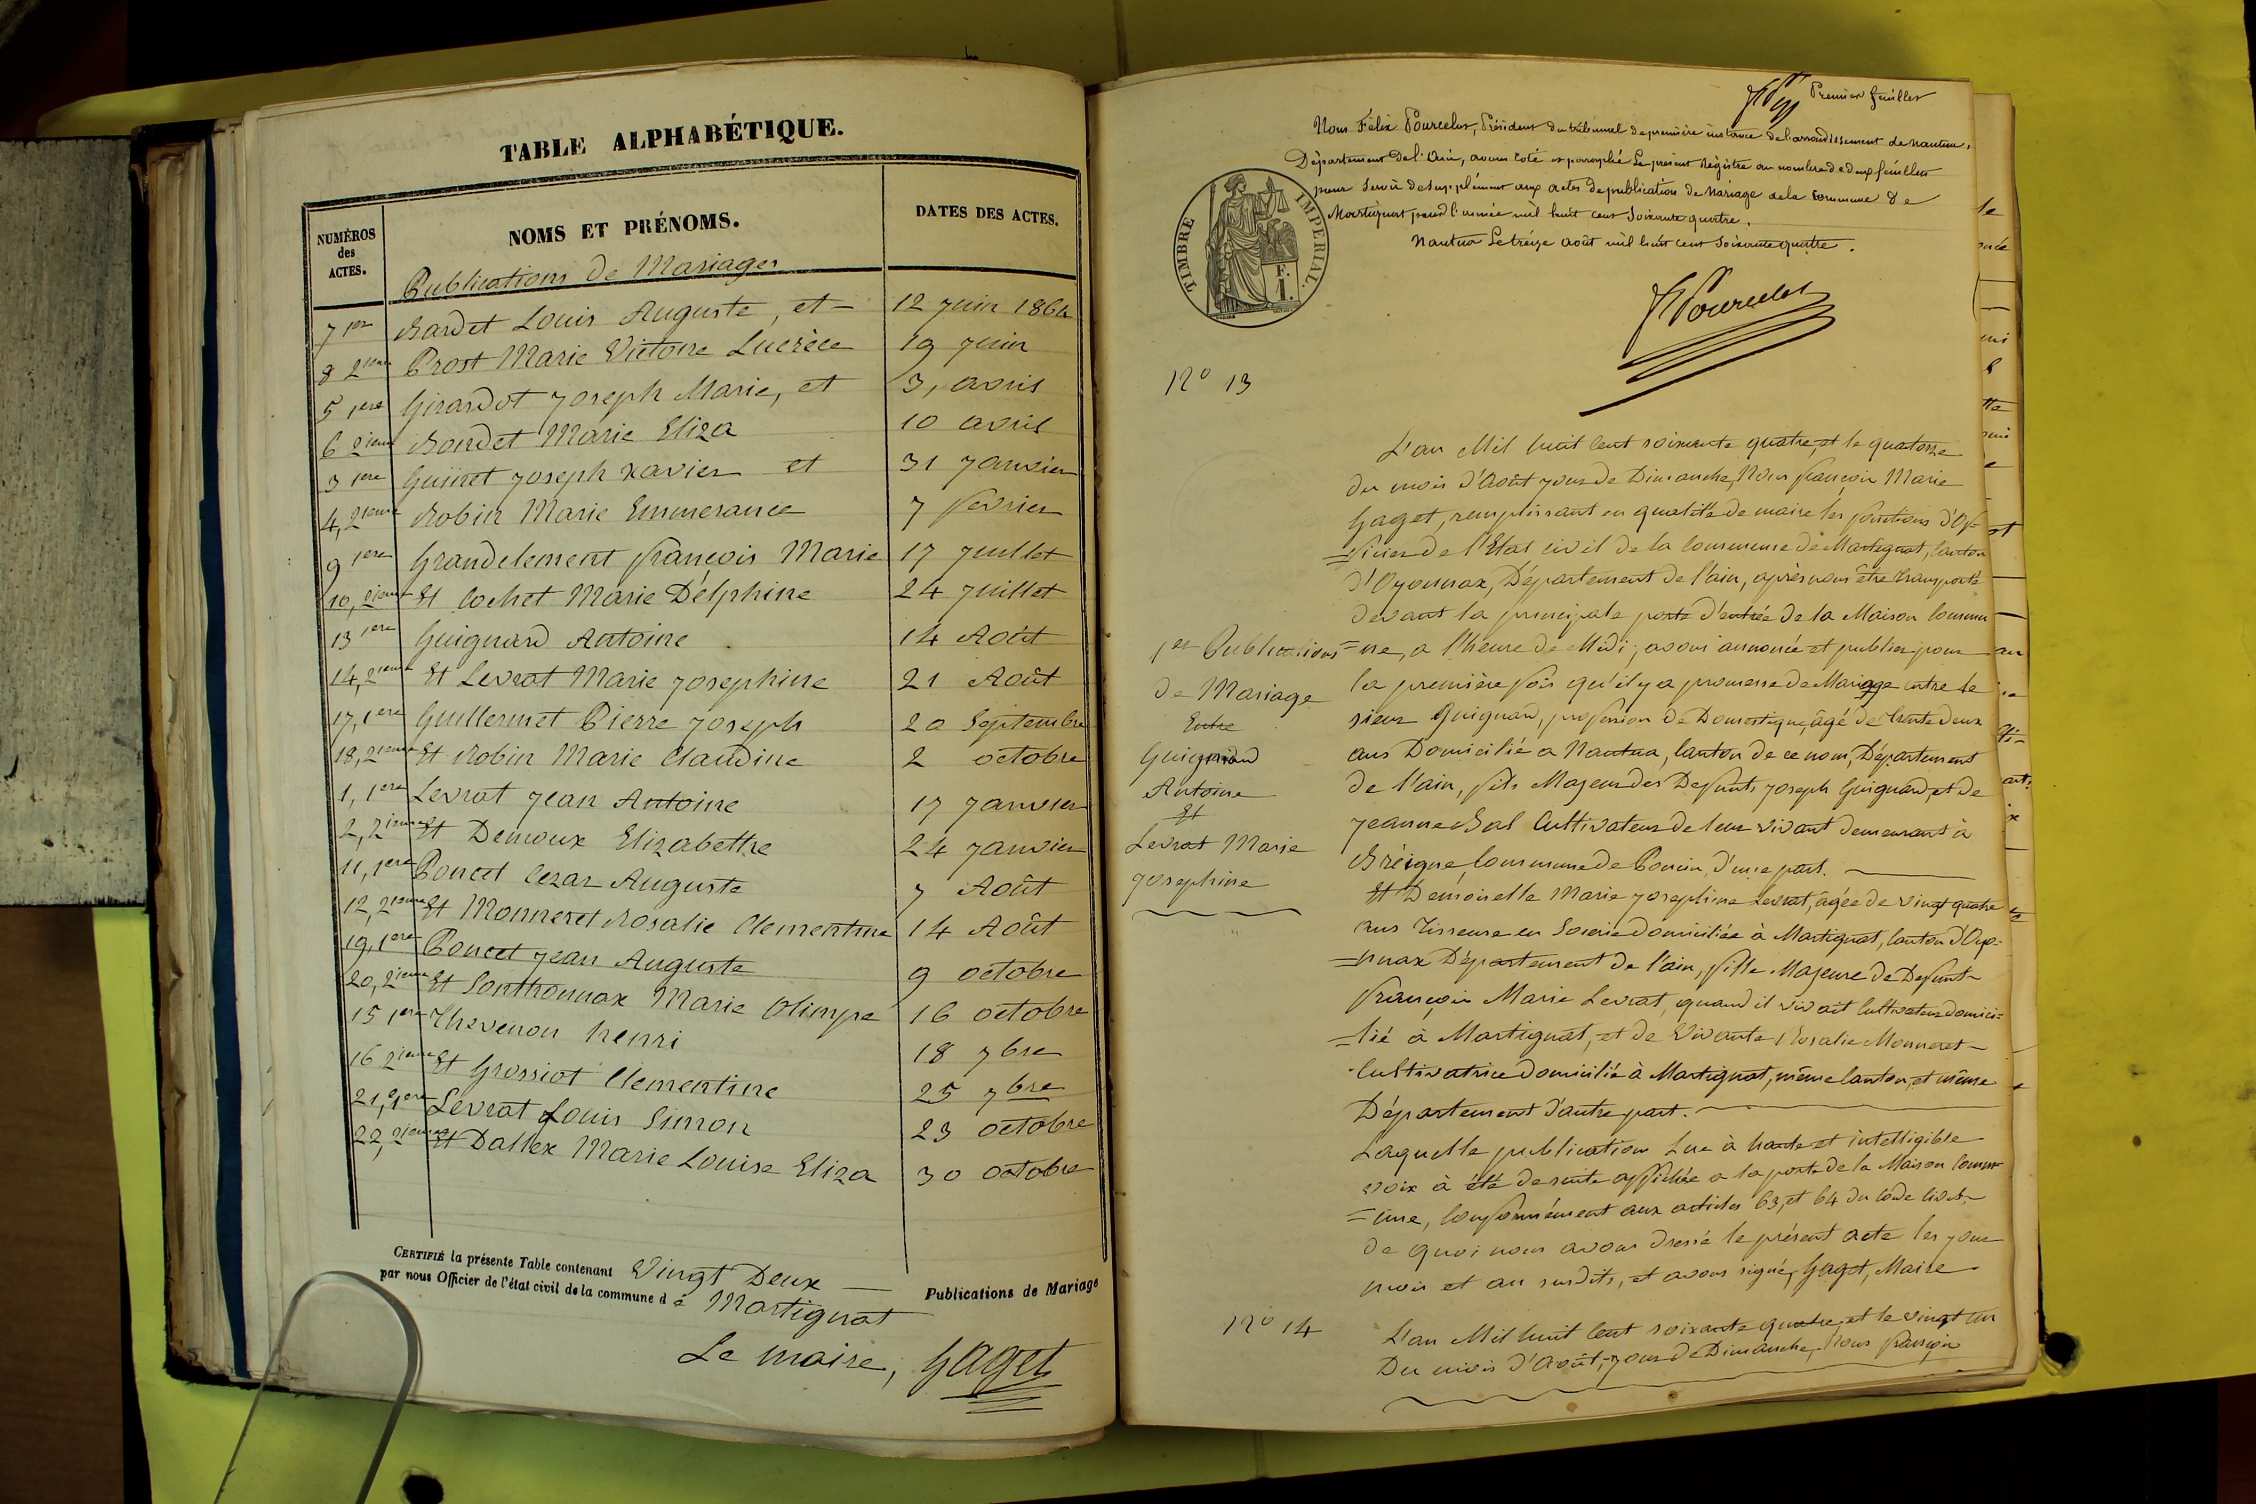 TABLE ALPHABÉTIQUE.
NUMÉROS des ACTES.
NOMS ET PRÉNOMS.
DATES DES ACTES.
Publications de Mariages
7 1ere Bardet Louis Auguste, et 12 juin 1864
8 2ieme Prost Marie Victoire Lucrèce 19 juin
5 1ere Girardot joseph Marie, et 3, avril
6 2ieme Bondet Marie Eliza 10 avril
3 1ere Guinet joseph xavier et 31 janvier
4, 2ieme Robin Marie Emmerance 7 fevrier
9 1ere Grandclement françois Marie 17 juillet
10, 2ieme Et Cochet Marie Délphine 24 juillet
13 1ere Guignard Antoine 14 Août
14, 2ieme Et Levrat Marie josephine 21 Août
17, 1ere Guillermet Pierre joseph 20 Septembre
18, 2ieme Et Robin Marie Claudine 2 octobre
1, 1ere Levrat jean Antoine 17 janvier
2, 2ieme Et Demoux Elizabethe 24 janvier
11, 1ere Poncet Cezar Auguste 7 Août
12, 2ieme Et Monneret Rosalie Clementine 14 Août
19, 1ere Poncet jean Auguste 9 octobre
20, 2ieme Et Sonthonnax Marie Olimpe 16 octobre
15 1ere Thevenon henri 18 7bre
16 2ieme Et Grossiot Clementine 25 7bre
21, 1ere Levrat Louis Simon 23 octobre
22, 2ieme Et Dallex Marie Louise Eliza 30 octobre
CERTIFIÉ la présente Table contenant Vingt Deux Publications de Mariage
par nous Officier de l'état civil de la commune d e Martignat
Le maire, Gaget
Premier feuillet
Nous Félix Pourcelot, Président du tribunal de première instance de l'arrondissement de Nantua,
Département de l'Ain, avons coté et paraphé Le présent Régistre au nombre de deux feuillets
pour Servir de supplément aux actes de publication de Mariage de la Commune de
Martignat, pour l'année mil huit cent Soixante quatre.
Nantua Le treize Août mil huit cent Soixante quatre.
TIMBRE IMPERIAL.
F. 1.
Pourcelot
No 13
L'an Mil huit Cent soixante quatre, et le quatorze
du mois d'Août jour de Dimanche, Nous françois Marie
Gaget, remplissant en qualité de maire les fonctions d'Of=
=ficier de l'Etat civil de la Commune de Martignat, Canton
d'Oyonnax, Département de l'ain, après nous être transporté
devant la principale porte d'entrée de la Maison Commu
=ne, a l'heure de Midi, avons annoncé et publier pour
la première fois qu'il y a promesse de Mariage entre le
sieur Guignard, profession de Domestique, âgé de trente deux
ans Domicilié a Nantua, Canton de ce nom, Département
de l'ain, fils Majeur des Defunts joseph Guignard, et de
jeanne Cultivateur de leur vivant demeurant à
Commune de Poncin, d'une part.
Et Demoiselle Marie josephine Levrat, âgée de vingt quatre
ans Tisseuse en Soierie domiciliée à Martignat, Canton d'Oyo=
=nnax Département de l'ain, fille Majeure de Defunt
françois Marie Levrat, quand il vivait Cultivateur domici=
=lié à Martignat, et de Vivante Rosalie Monneret
Cultivatrice domicilié à Martignat, même Canton, et même
Département d'autre part.
Laquelle publication Lue à haute et intelligible
voix à été de suite affichée a la porte de la Maison Comm
=une, Conformément aux articles 63, et 64 du Code Civil
de quoi nous avons dressé le présent acte les jour
mois et an susdits, et avons signé, Gaget, Maire
1er Publications
de Mariage
Entre
Guignard
Antoine
Et
Levrat Marie
josephine
No 14
L'an Mil huit Cent soixante quatre, et le vingt un
Du mois d'Août, jour de Dimanche, Nous françois